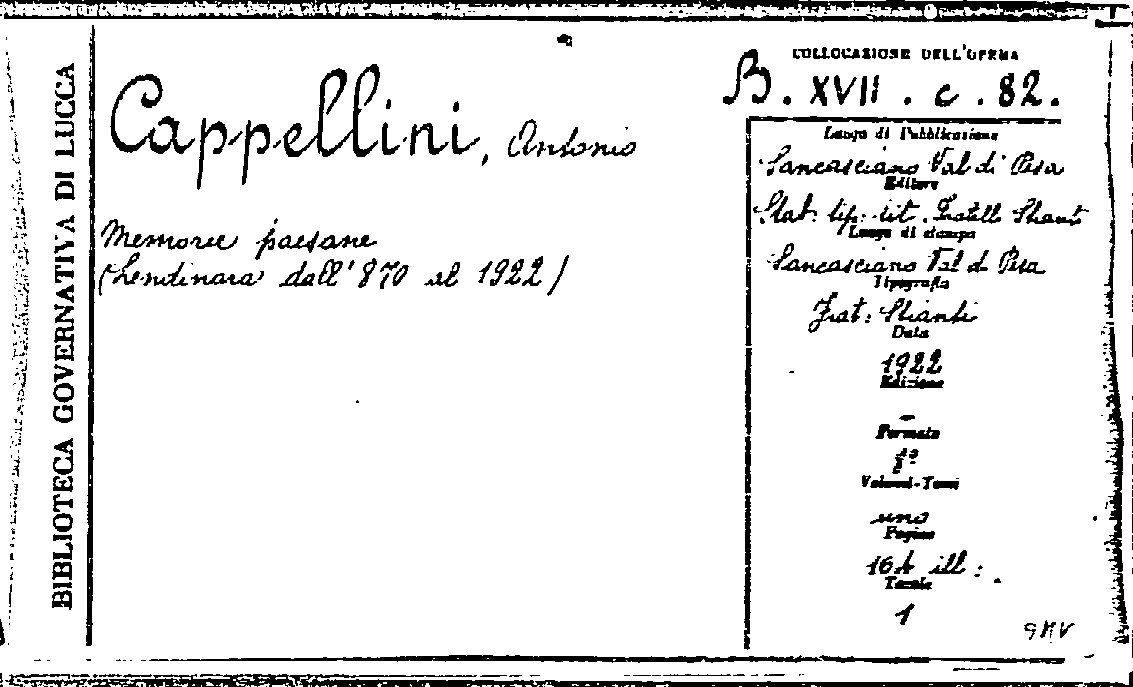 BIBLIOTECA GOVERNATIVA DI LUCCA
Cappellini, Antonio
Memorie paesane
(Lendinara dall'870 al 1922)
COLLOCAZIONE DELL'OPERA
B. XVII. c. 82.
Luogo di Pubblicazione
Sancasciano Val di Pesa
Editore
Stab. tip. lit. Fratelli Stianti
Luogo di stampa
Sancasciano Val d. Pesa
Tipografia
Frat: Stianti
Data
1922
Edizione
-
Formato
8º
Volumi-Tomi
uno
Pagine
164 ill:
Tavole
1